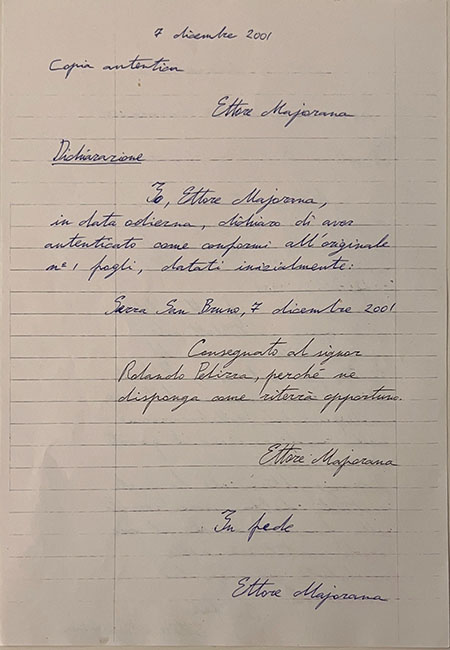 7 dicembre 2001
Copia autentica
Ettore Majorana
Dichiarazione
Io, Ettore Majorana,
in data odierna, dichiaro di aver
autenticato come conformi all'originale
n° 1 fogli, datati inizialmente:
Serra San Bruno, 7 dicembre 2001
Consegnato al signor
Rolando Pelizza, perché ne
disponga come riterrà opportuno.
Ettore Majorana
In fede
Ettore Majorana